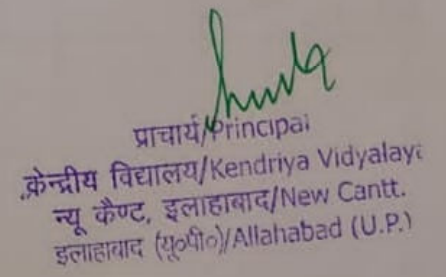 प्राचार्य/Principal
केन्द्रीय विद्यालय/Kendriya Vidyalaya
न्यू कैण्ट, इलाहाबाद/New Cantt.
इलाहाबाद (यू०पी०)/Allahabad (U.P.)